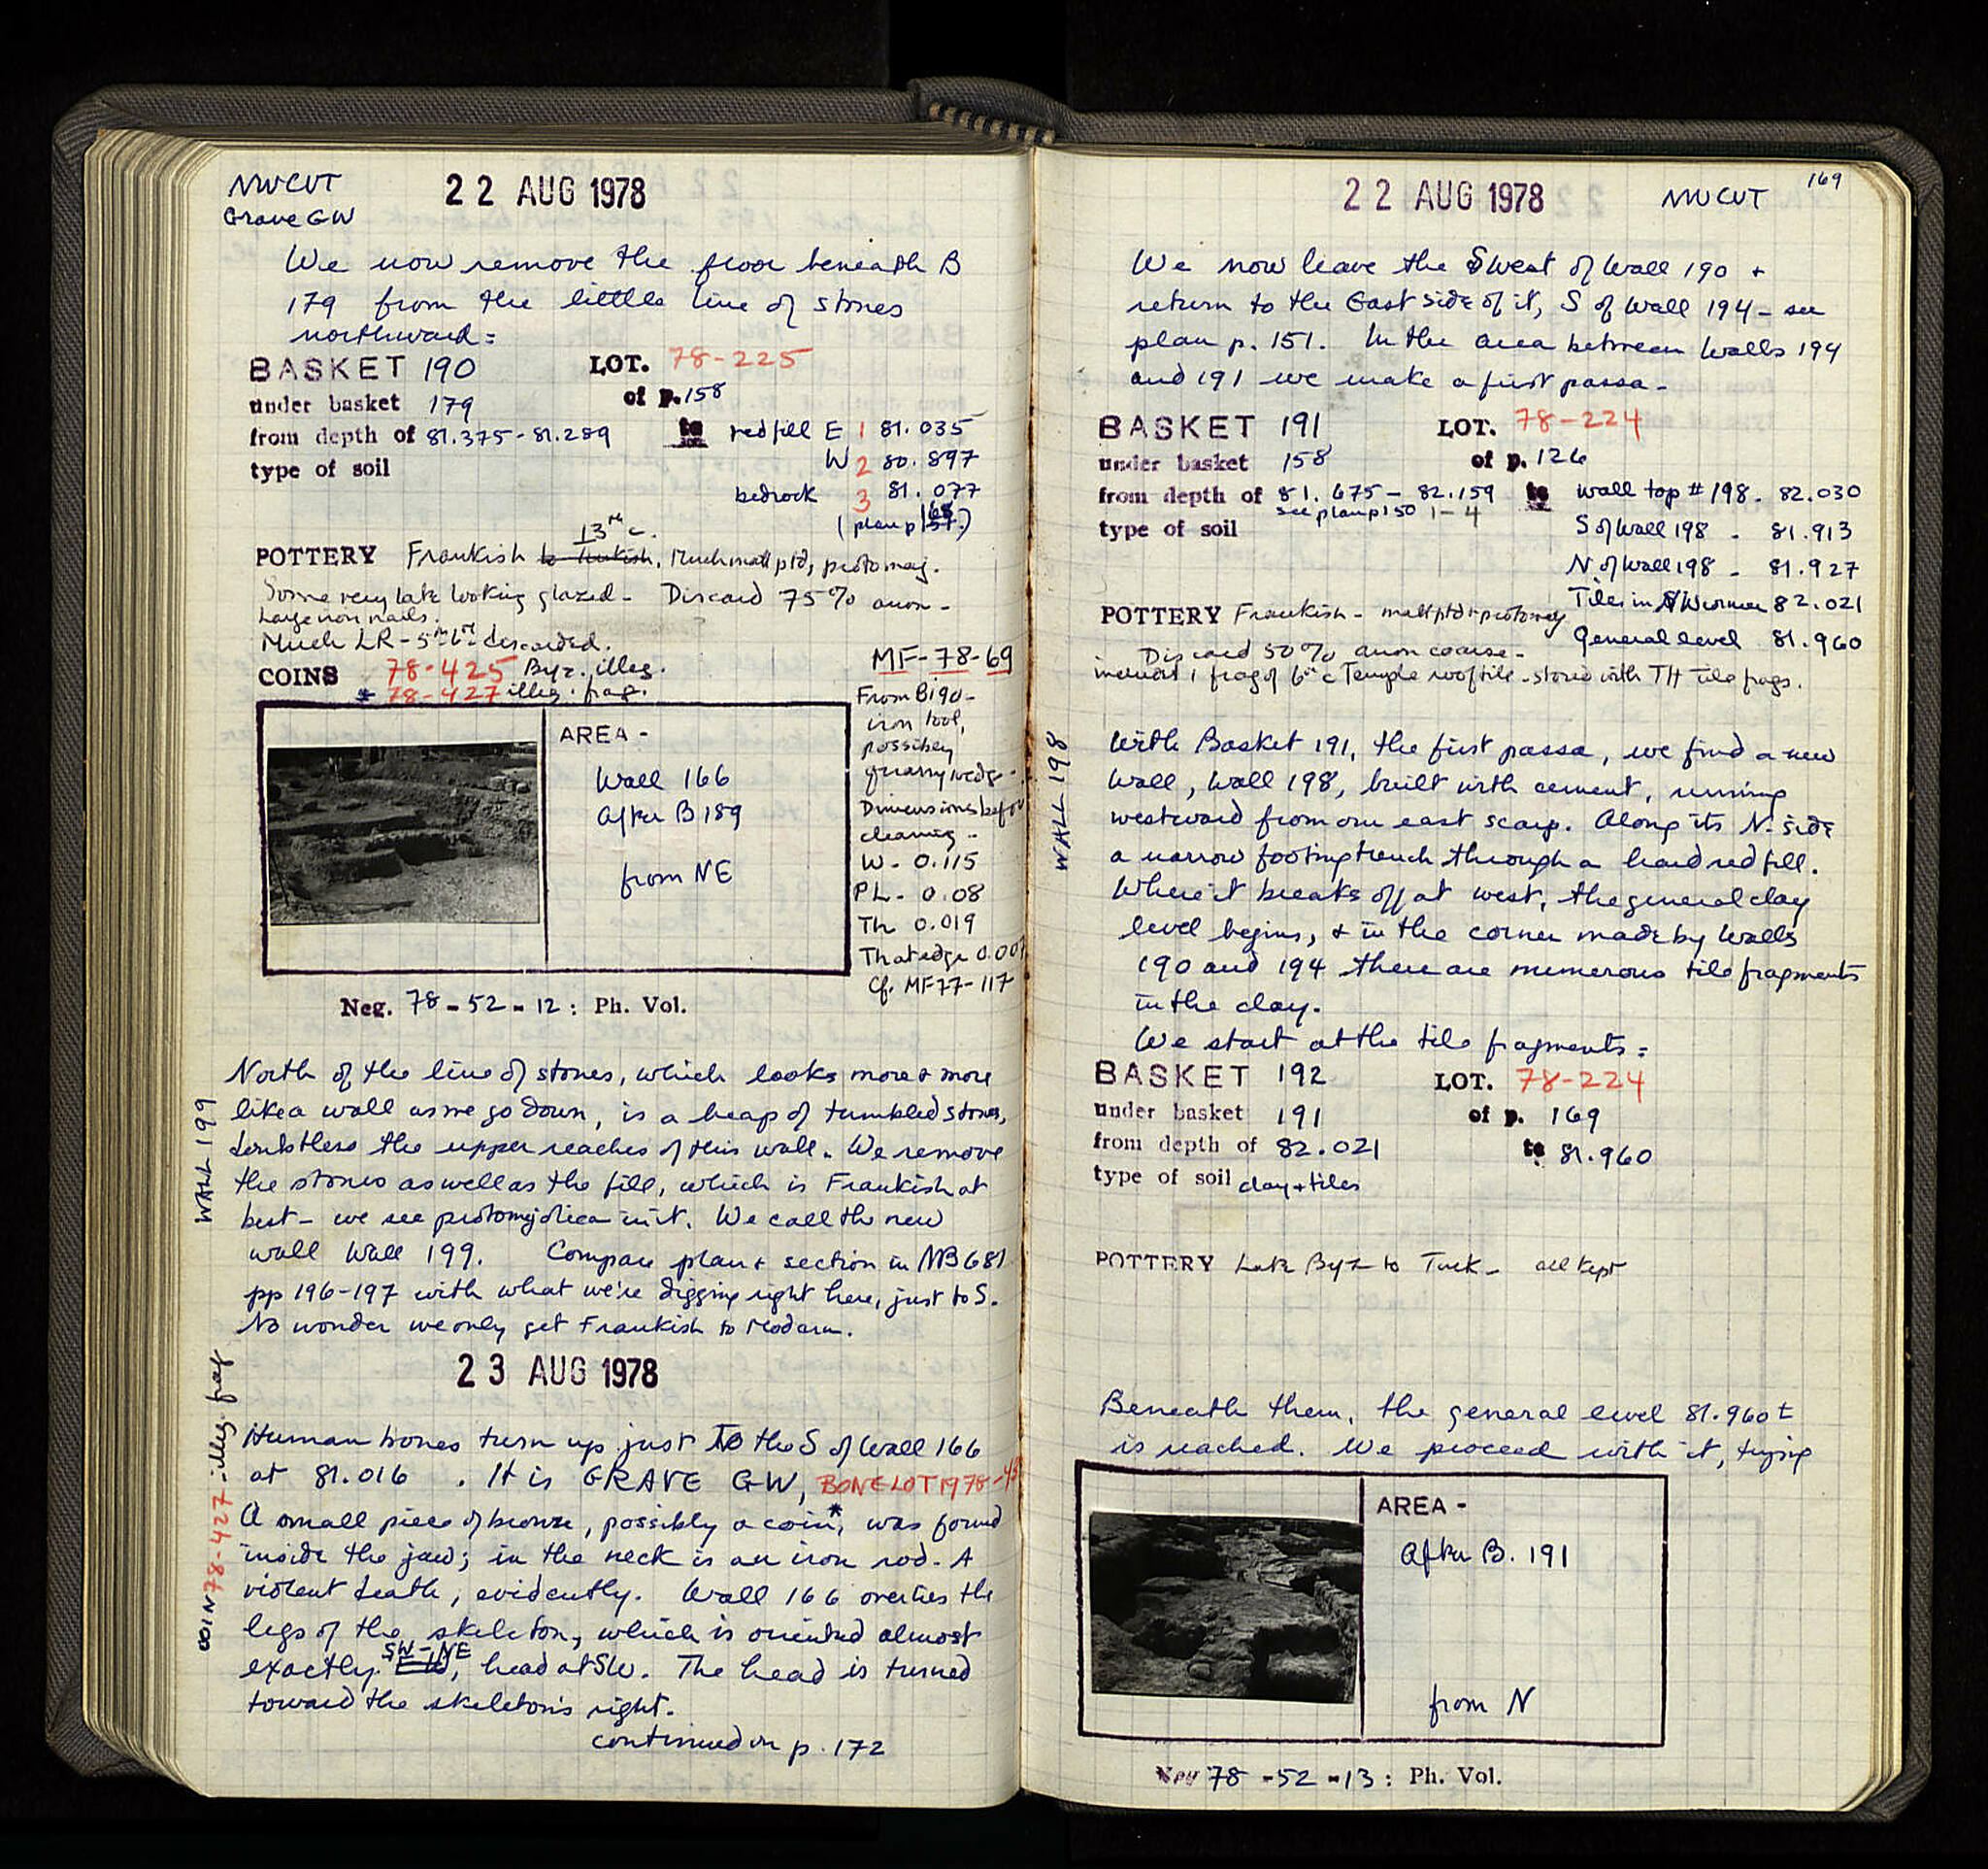 NW CUT
Grave GW
22 AUG 1978
We now remove the floor beneath B
179 from the little line of stones
northward:
BASKET 190 LOT. 78-225
under basket 179 of p. 158
from depth of 81.375-81.289 to red fill E 1 81.035
W 2 80.897
type of soil
bedrock 3 81.077
(plan p 168)
13th c.
POTTERY Frankish to Turkish, Much matt ptd, protomaj.
Some very late looking glazed - Discard 75% anon -
Large iron nails.
Much LR - 5th 6th discarded.
COINS 78-425 Byz. illeg.
* 78-427 illeg. frag.
MF-78-69
From B190 -
iron tool,
possibly
quarry wedge -
Dimensions before
cleaning -
W - 0.115
PL - 0.08
Th 0.019
Th at edge 0.007
Cf. MF 77-117
AREA -
Wall 166
After B 189
from NE
Neg. 78-52-12: Ph. Vol.
WALL 199
North of the line of stones, which looks more + more
like a wall as we go down, is a heap of tumbled stones,
doubtless the upper reaches of this wall. We remove
the stones as well as the fill, which is Frankish at
best - we see protomajolica in it. We call the new
wall Wall 199. Compare plan + section in NB 681
pp 196-197 with what we're digging right here, just to S.
No wonder we only get Frankish to Modern.
23 AUG 1978
COIN 78-427 - illeg. frag
Human bones turn up just to the S of Wall 166
at 81.016. It is GRAVE GW, BONE LOT 1978-
A small piece of bronze, possibly a coin*, was found
inside the jaw; in the neck is an iron rod. A
violent death, evidently. Wall 166 overlies the
legs of the skeleton, which is oriented almost
exactly SW-NE, head at SW. The head is turned
toward the skeleton's right.
continued on p. 172
169
22 AUG 1978 NW CUT
We now leave the SWest of Wall 190 +
return to the East side of it, S of Wall 194 - see
plan p. 151. In the area between Walls 194
and 191 we make a first passa -
BASKET 191 LOT. 78-224
under basket 158 of p. 126
from depth of 81.675 - 82.159 to wall top # 198 - 82.030
see plan p 150 1-4
type of soil S of Wall 198 - 81.913
N of Wall 198 - 81.927
Tiles in NW corner 82.021
General level 81.960
POTTERY Frankish - matt ptd + protomaj
Discard 50% anon coarse -
includes 1 frag of 6th c Temple rooftile - stored with TH tile frags.
WALL 198
With Basket 191, the first passa, we find a new
Wall, Wall 198, built with cement, running
westward from our east scarp. Along its N. side
a narrow footing trench through a hard red fill.
Where it breaks off at west, the general clay
level begins, + in the corner made by Walls
190 and 194 there are numerous tile fragments
in the clay.
We start at the tile fragments:
BASKET 192 LOT. 78-224
under basket 191 of p. 169
from depth of 82.021 to 81.960
type of soil clay + tiles
POTTERY Late Byz to Turk - all kept
Beneath them, the general level 81.960±
is reached. We proceed with it, trying
AREA -
After B. 191
from N
Neg 78-52-13: Ph. Vol.